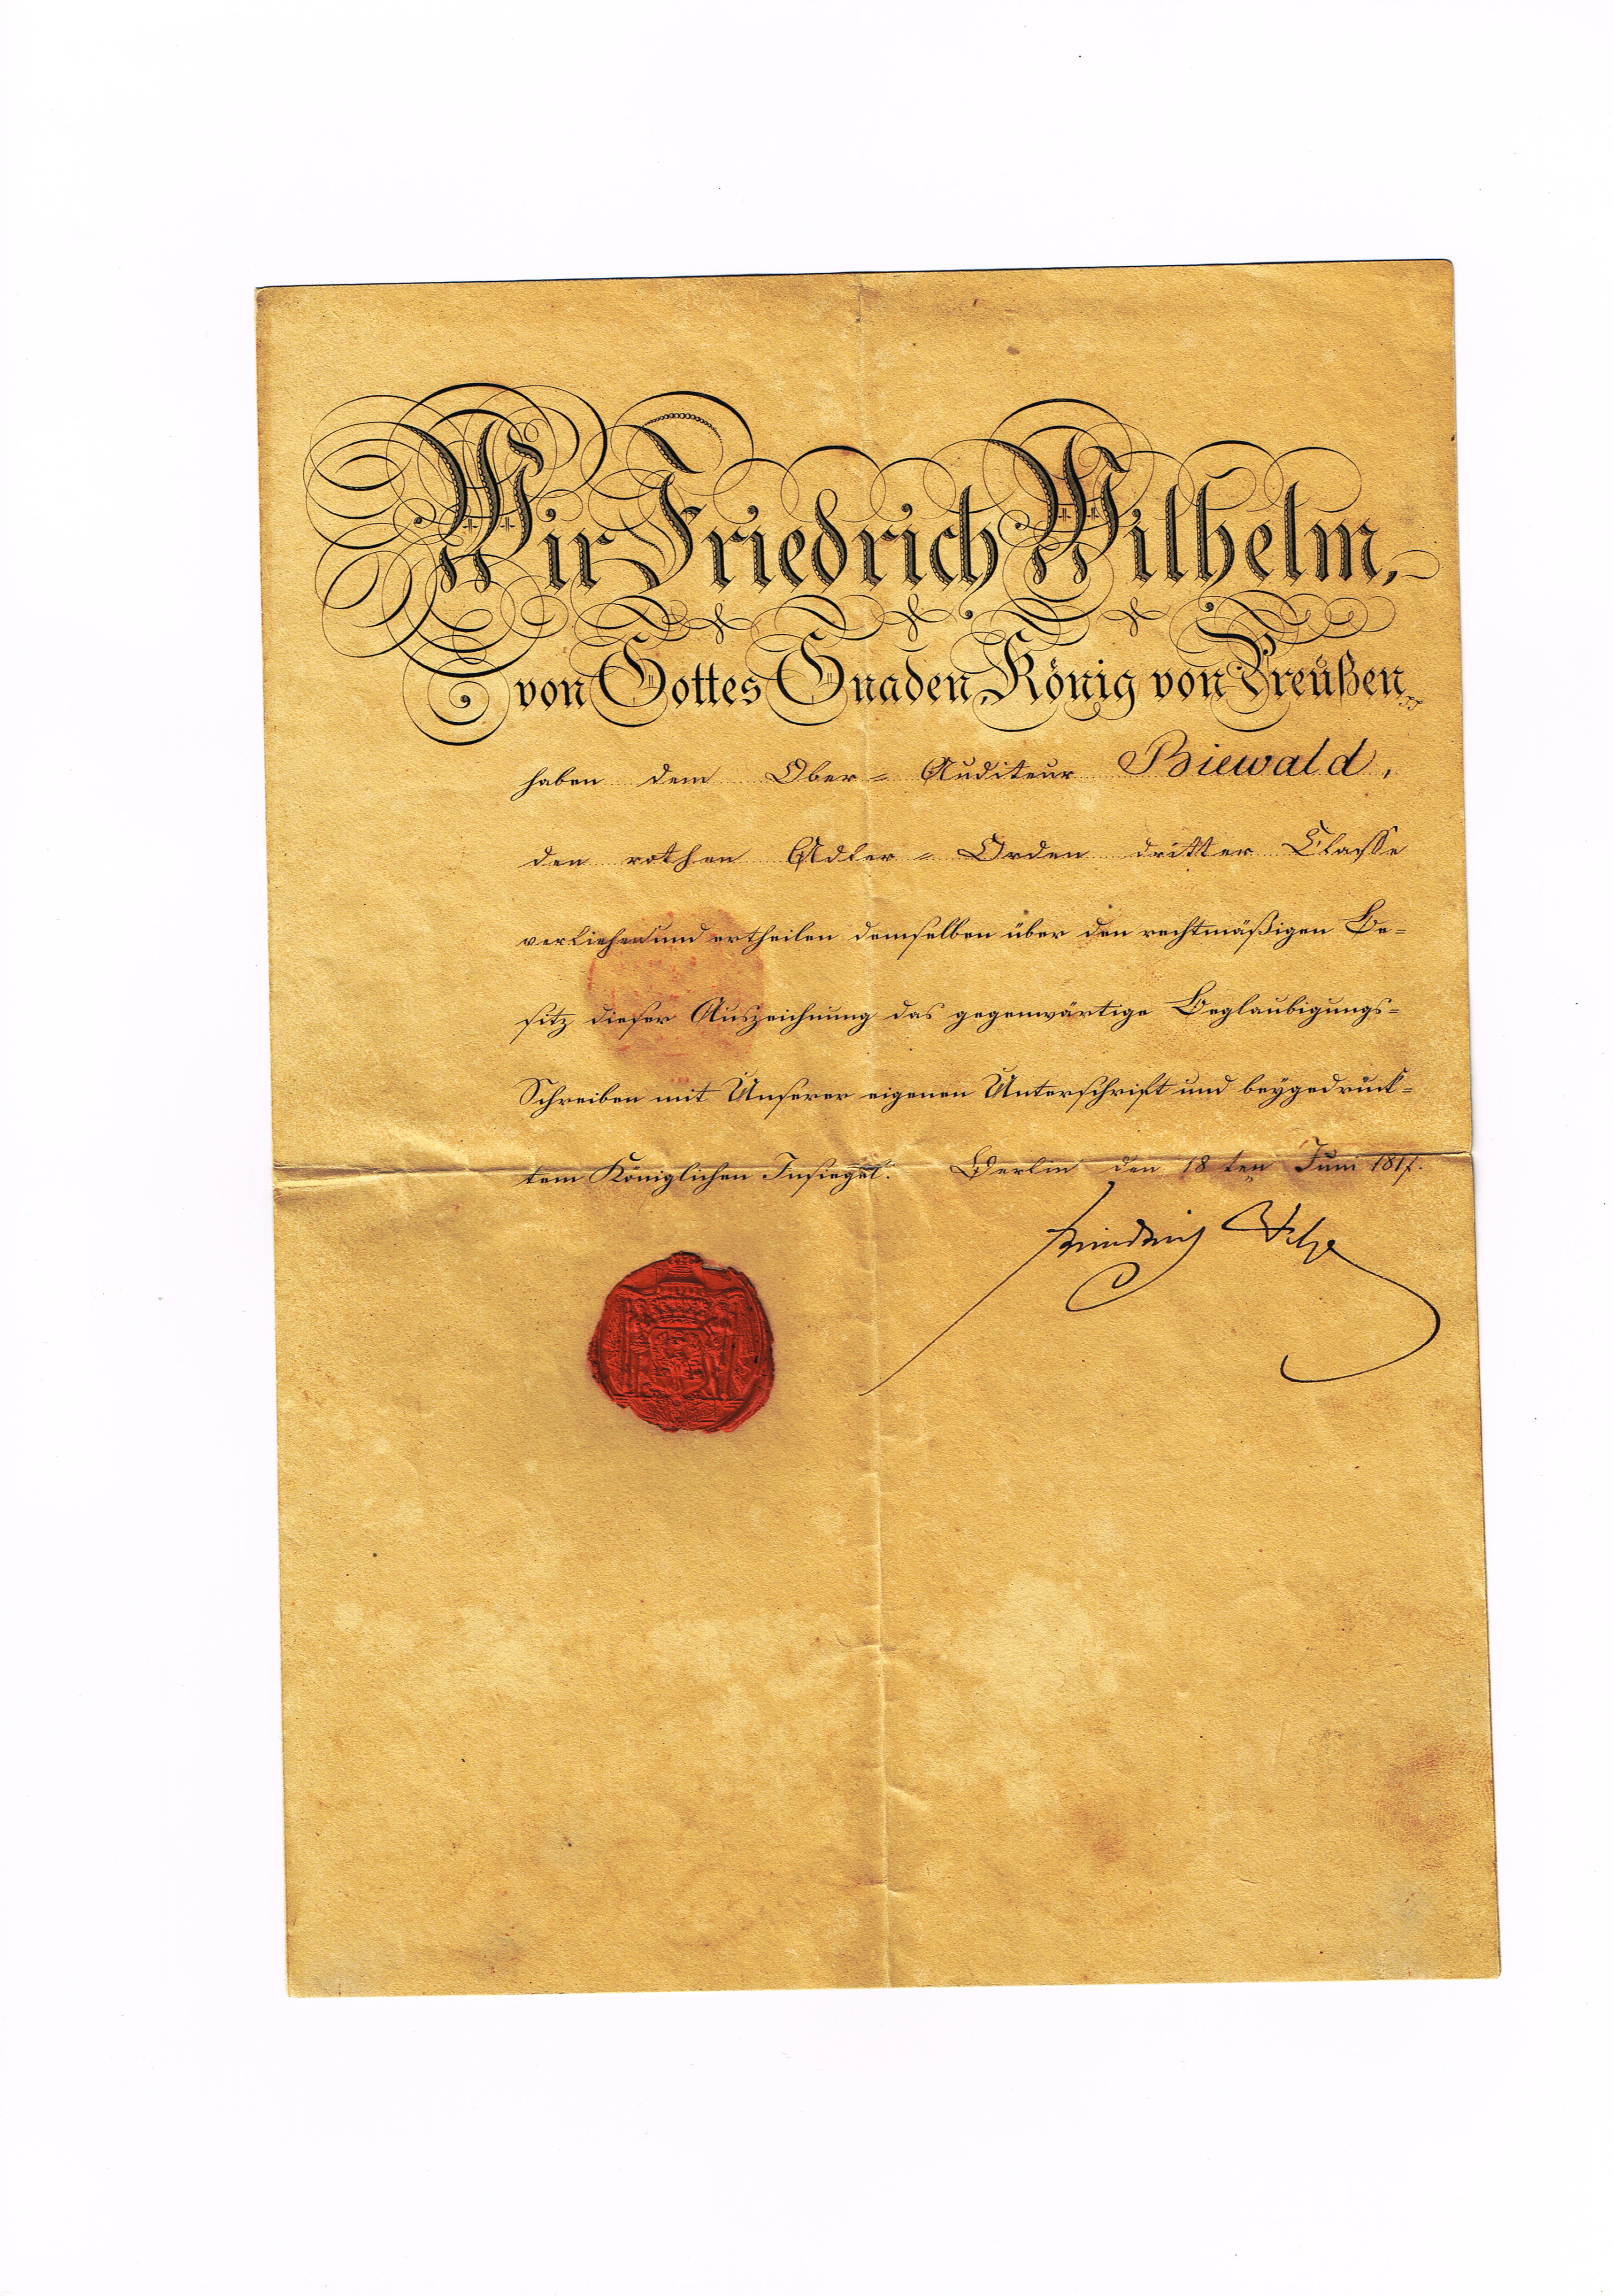 Wir Friedrich Wilhelm,
von Gottes Gnaden, König von Preußen,
haben dem Ober-Auditeur Biewald,
den rothen Adler-Orden dritter Classe
verliehen und ertheilen demselben über den rechtmäßigen Be-
sitz dieser Auszeichnung das gegenwärtige Beglaubigungs-
Schreiben mit Unserer eigenen Unterschrift und beygedruck-
tem Königlichen Insiegel. Berlin den 18ten Juni 1817.
Friedrich Wilhelm